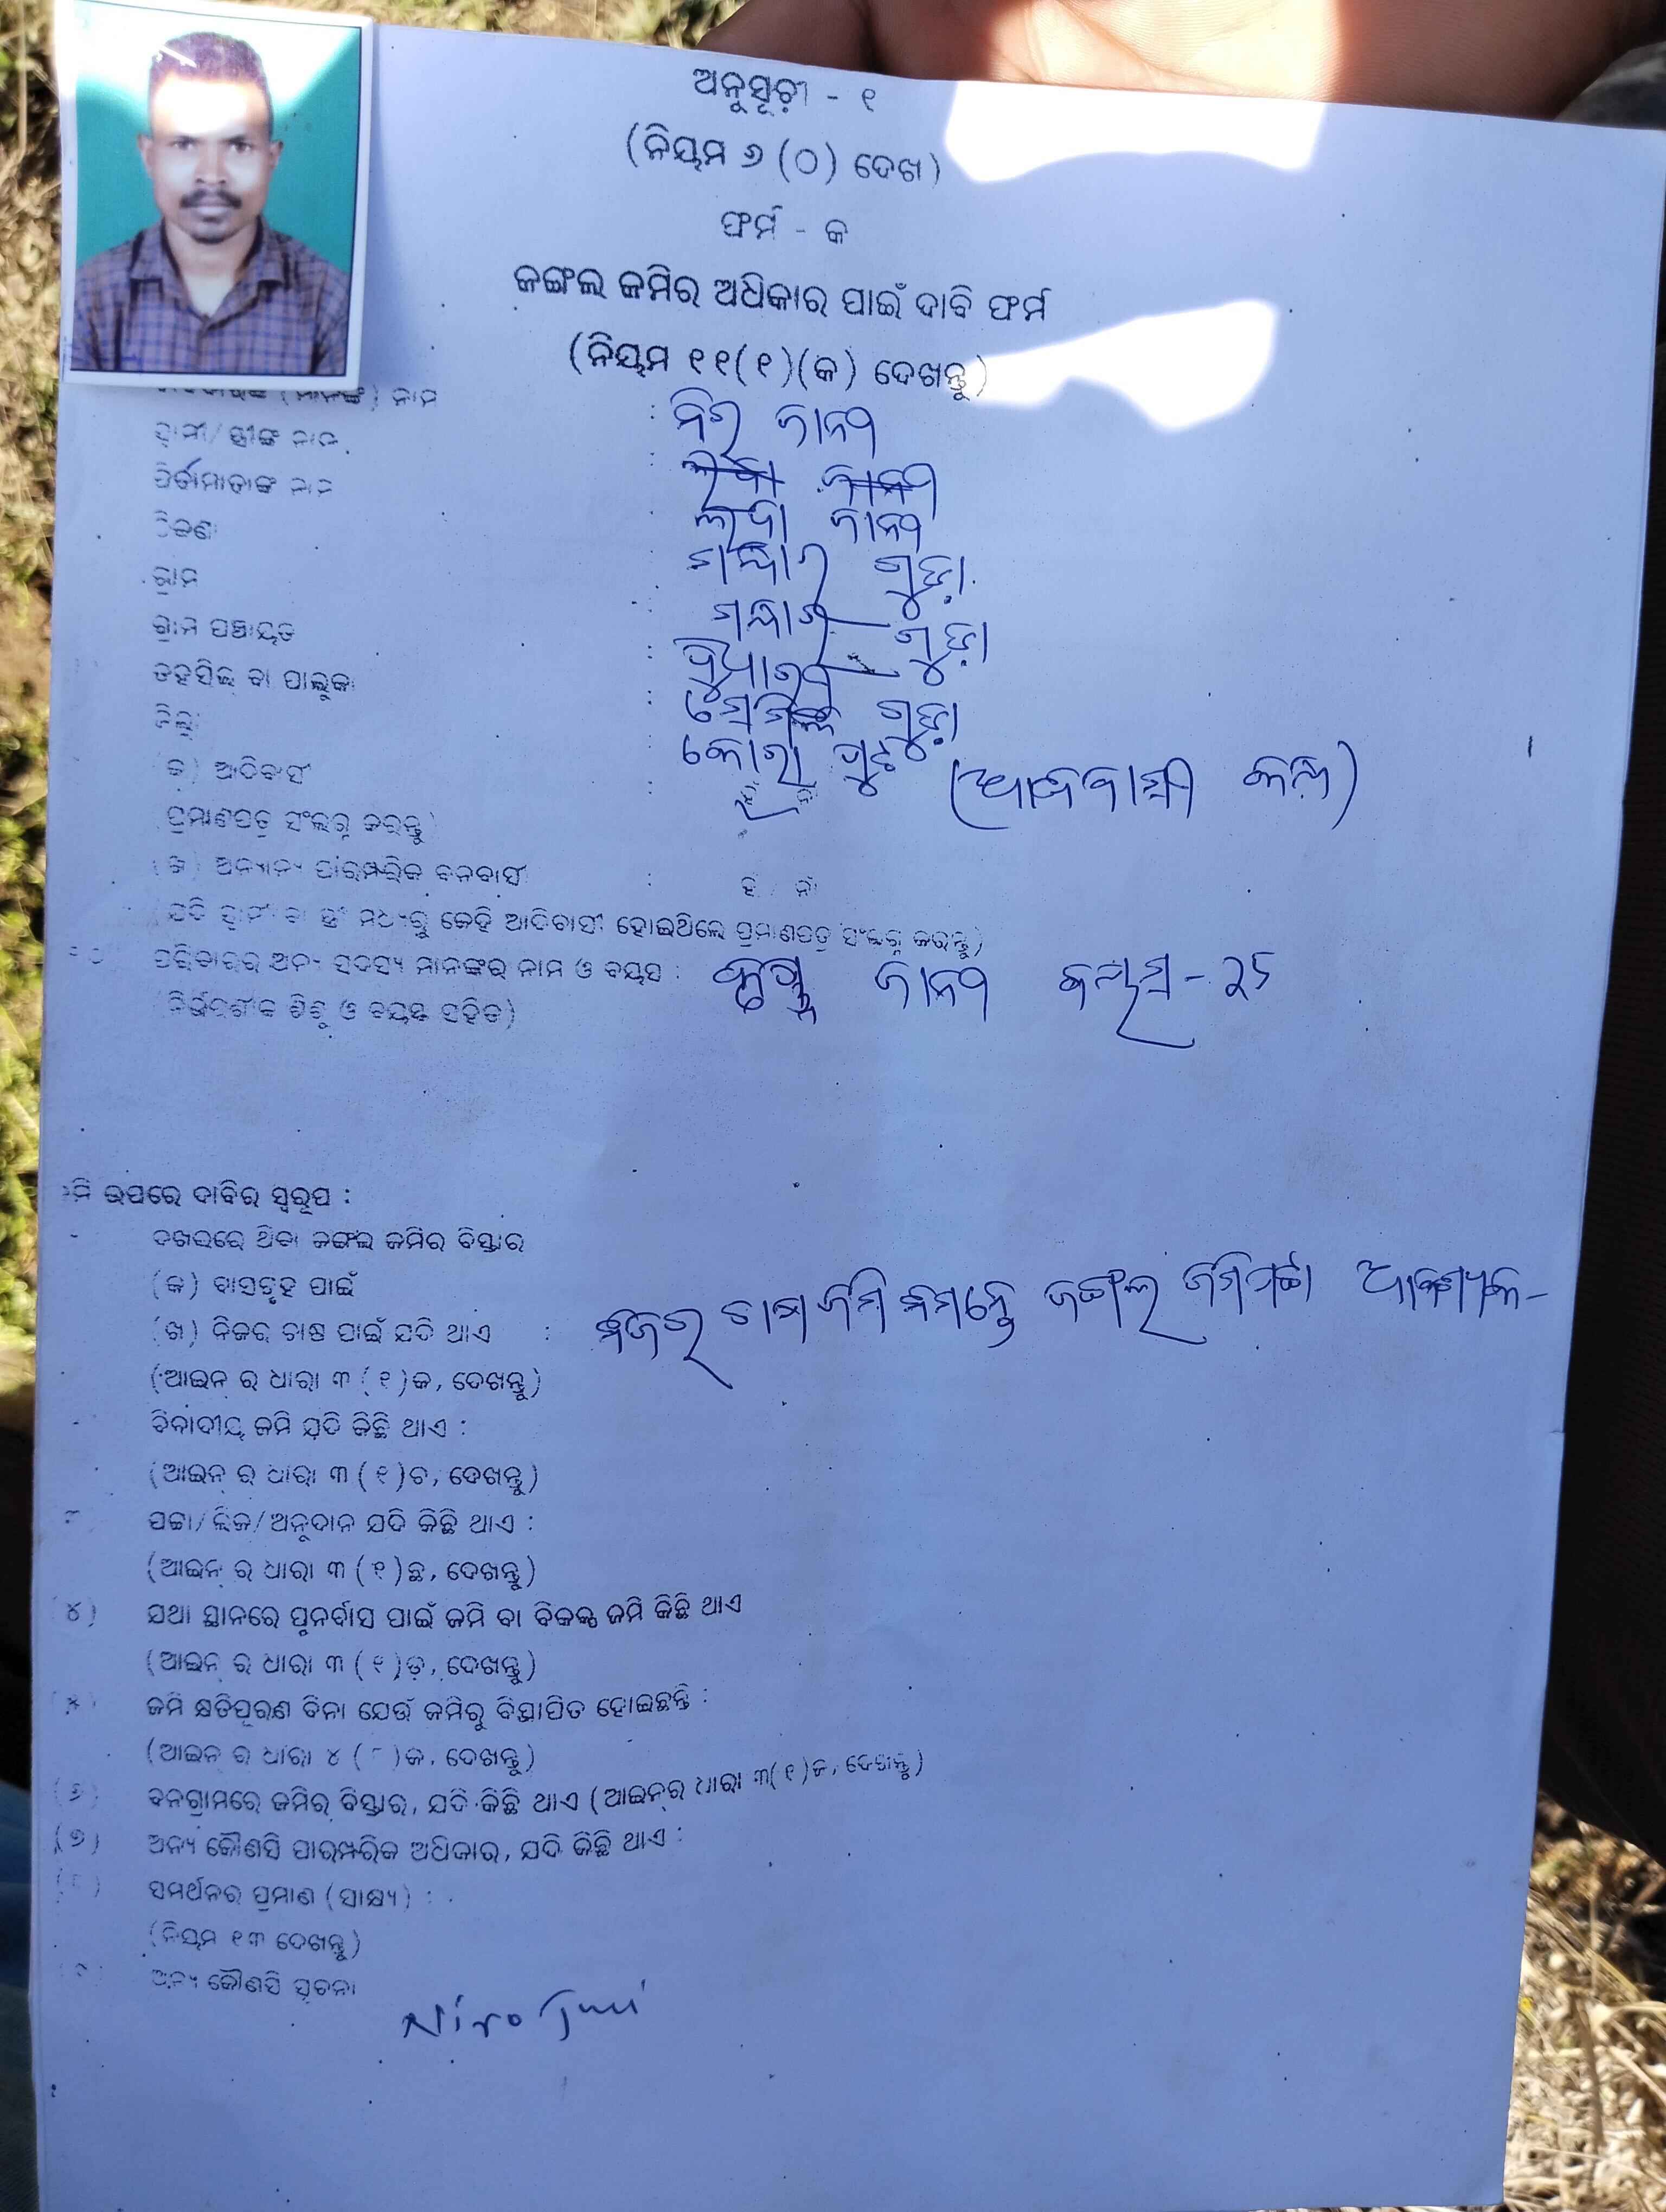 ଅନୁସୂଚୀ - ୧
(ନିୟମ ୬ (୦) ଦେଖ)
ଫର୍ମ - କ
ଜଙ୍ଗଲ ଜମିର ଅଧିକାର ପାଇଁ ଦାବି ଫର୍ମ
(ନିୟମ ୧୧(୧)(କ) ଦେଖନ୍ତୁ)
(ମାନଙ୍କ) ନାମ : ନିର ଜାନୀ
ସ୍ୱାମୀ/ସ୍ତ୍ରୀଙ୍କ ନାମ :
ପିତାମାତାଙ୍କ ନାମ ଜାନୀ
ଠିକଣା ଗୁଡ଼ା
ଗ୍ରାମ : ଗୁଡ଼ା
ଗ୍ରାମ ପଞ୍ଚାୟତ :
ତହସିଲ ବା ତାଲୁକା : ଗୁଡ଼ା
ଜିଲ୍ଲା : କୋରାପୁଟ
(କ) ଆଦିବାସୀ : (ଆଦିବାସୀ କନ୍ଧ)
(ପ୍ରମାଣପତ୍ର ସଂଲଗ୍ନ କରନ୍ତୁ)
(ଖ) ଅନ୍ୟାନ୍ୟ ପାରମ୍ପରିକ ବନବାସୀ : ହଁ / ନାଁ
(ଯଦି ସ୍ୱାମୀ ବା ସ୍ତ୍ରୀ ମଧ୍ୟରୁ କେହି ଆଦିବାସୀ ହୋଇଥିଲେ ପ୍ରମାଣପତ୍ର ସଂଲଗ୍ନ କରନ୍ତୁ)
ପରିବାରର ଅନ୍ୟ ସଦସ୍ୟ ମାନଙ୍କର ନାମ ଓ ବୟସ : ଜାନୀ ବୟସ - ୨୫
(ନିର୍ଭରଶୀଳ ଶିଶୁ ଓ ବୟସ୍କ ସହିତ)
ଉପରେ ଦାବିର ସ୍ୱରୂପ :
ଦଖଲରେ ଥିବା ଜଙ୍ଗଲ ଜମିର ବିସ୍ତାର
(କ) ବାସଗୃହ ପାଇଁ
(ଖ) ନିଜର ଚାଷ ପାଇଁ ଯଦି ଥାଏ : ନିଜର ଚାଷ ଜମି ନିମନ୍ତେ ଜଙ୍ଗଲ ଜମିପଟ୍ଟା ଆବଶ୍ୟକ-
(ଆଇନ ର ଧାରା ୩ (୧)କ, ଦେଖନ୍ତୁ)
ବିବାଦୀୟ ଜମି ଯଦି କିଛି ଥାଏ :
(ଆଇନ ର ଧାରା ୩ (୧)ଚ, ଦେଖନ୍ତୁ)
ପଟ୍ଟା/ଲିଜ/ଅନୁଦାନ ଯଦି କିଛି ଥାଏ :
(ଆଇନ ର ଧାରା ୩ (୧)ଛ, ଦେଖନ୍ତୁ)
(୪) ଯଥା ସ୍ଥାନରେ ପୁନର୍ବାସ ପାଇଁ ଜମି ବା ବିକଳ୍ପ ଜମି କିଛି ଥାଏ
(ଆଇନ ର ଧାରା ୩ (୧)ଡ଼, ଦେଖନ୍ତୁ)
(୫) ଜମି କ୍ଷତିପୂରଣ ବିନା ଯେଉଁ ଜମିରୁ ବିସ୍ଥାପିତ ହୋଇଛନ୍ତି :
(ଆଇନ ର ଧାରା ୪ ( )କ, ଦେଖନ୍ତୁ)
(୬) ବନଗ୍ରାମରେ ଜମିର ବିସ୍ତାର, ଯଦି କିଛି ଥାଏ (ଆଇନର ଧାରା ୩(୧)ଜ, ଦେଖନ୍ତୁ)
(୭) ଅନ୍ୟ କୌଣସି ପାରମ୍ପରିକ ଅଧିକାର, ଯଦି କିଛି ଥାଏ :
ସମର୍ଥନର ପ୍ରମାଣ (ସାକ୍ଷ୍ୟ) :
(ନିୟମ ୧୩ ଦେଖନ୍ତୁ)
ଅନ୍ୟ କୌଣସି ସୂଚନା
Niro